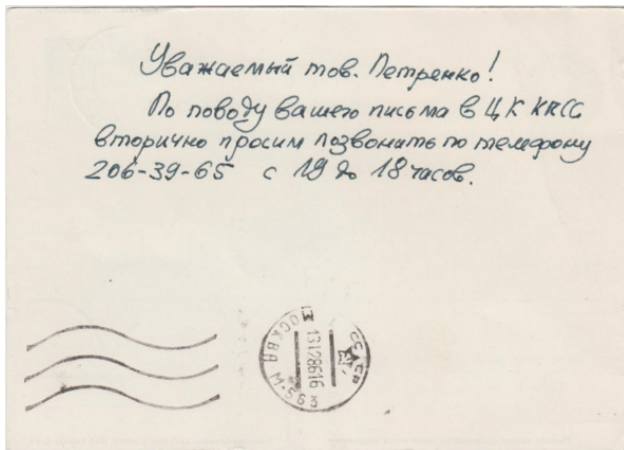 Уважаемый тов. Петренко!
По поводу вашего письма в ЦК КПСС
вторично просим позвонить по телефону
206-39-65 с 19 до 18 часов.
МОСКВА М-563
СССР